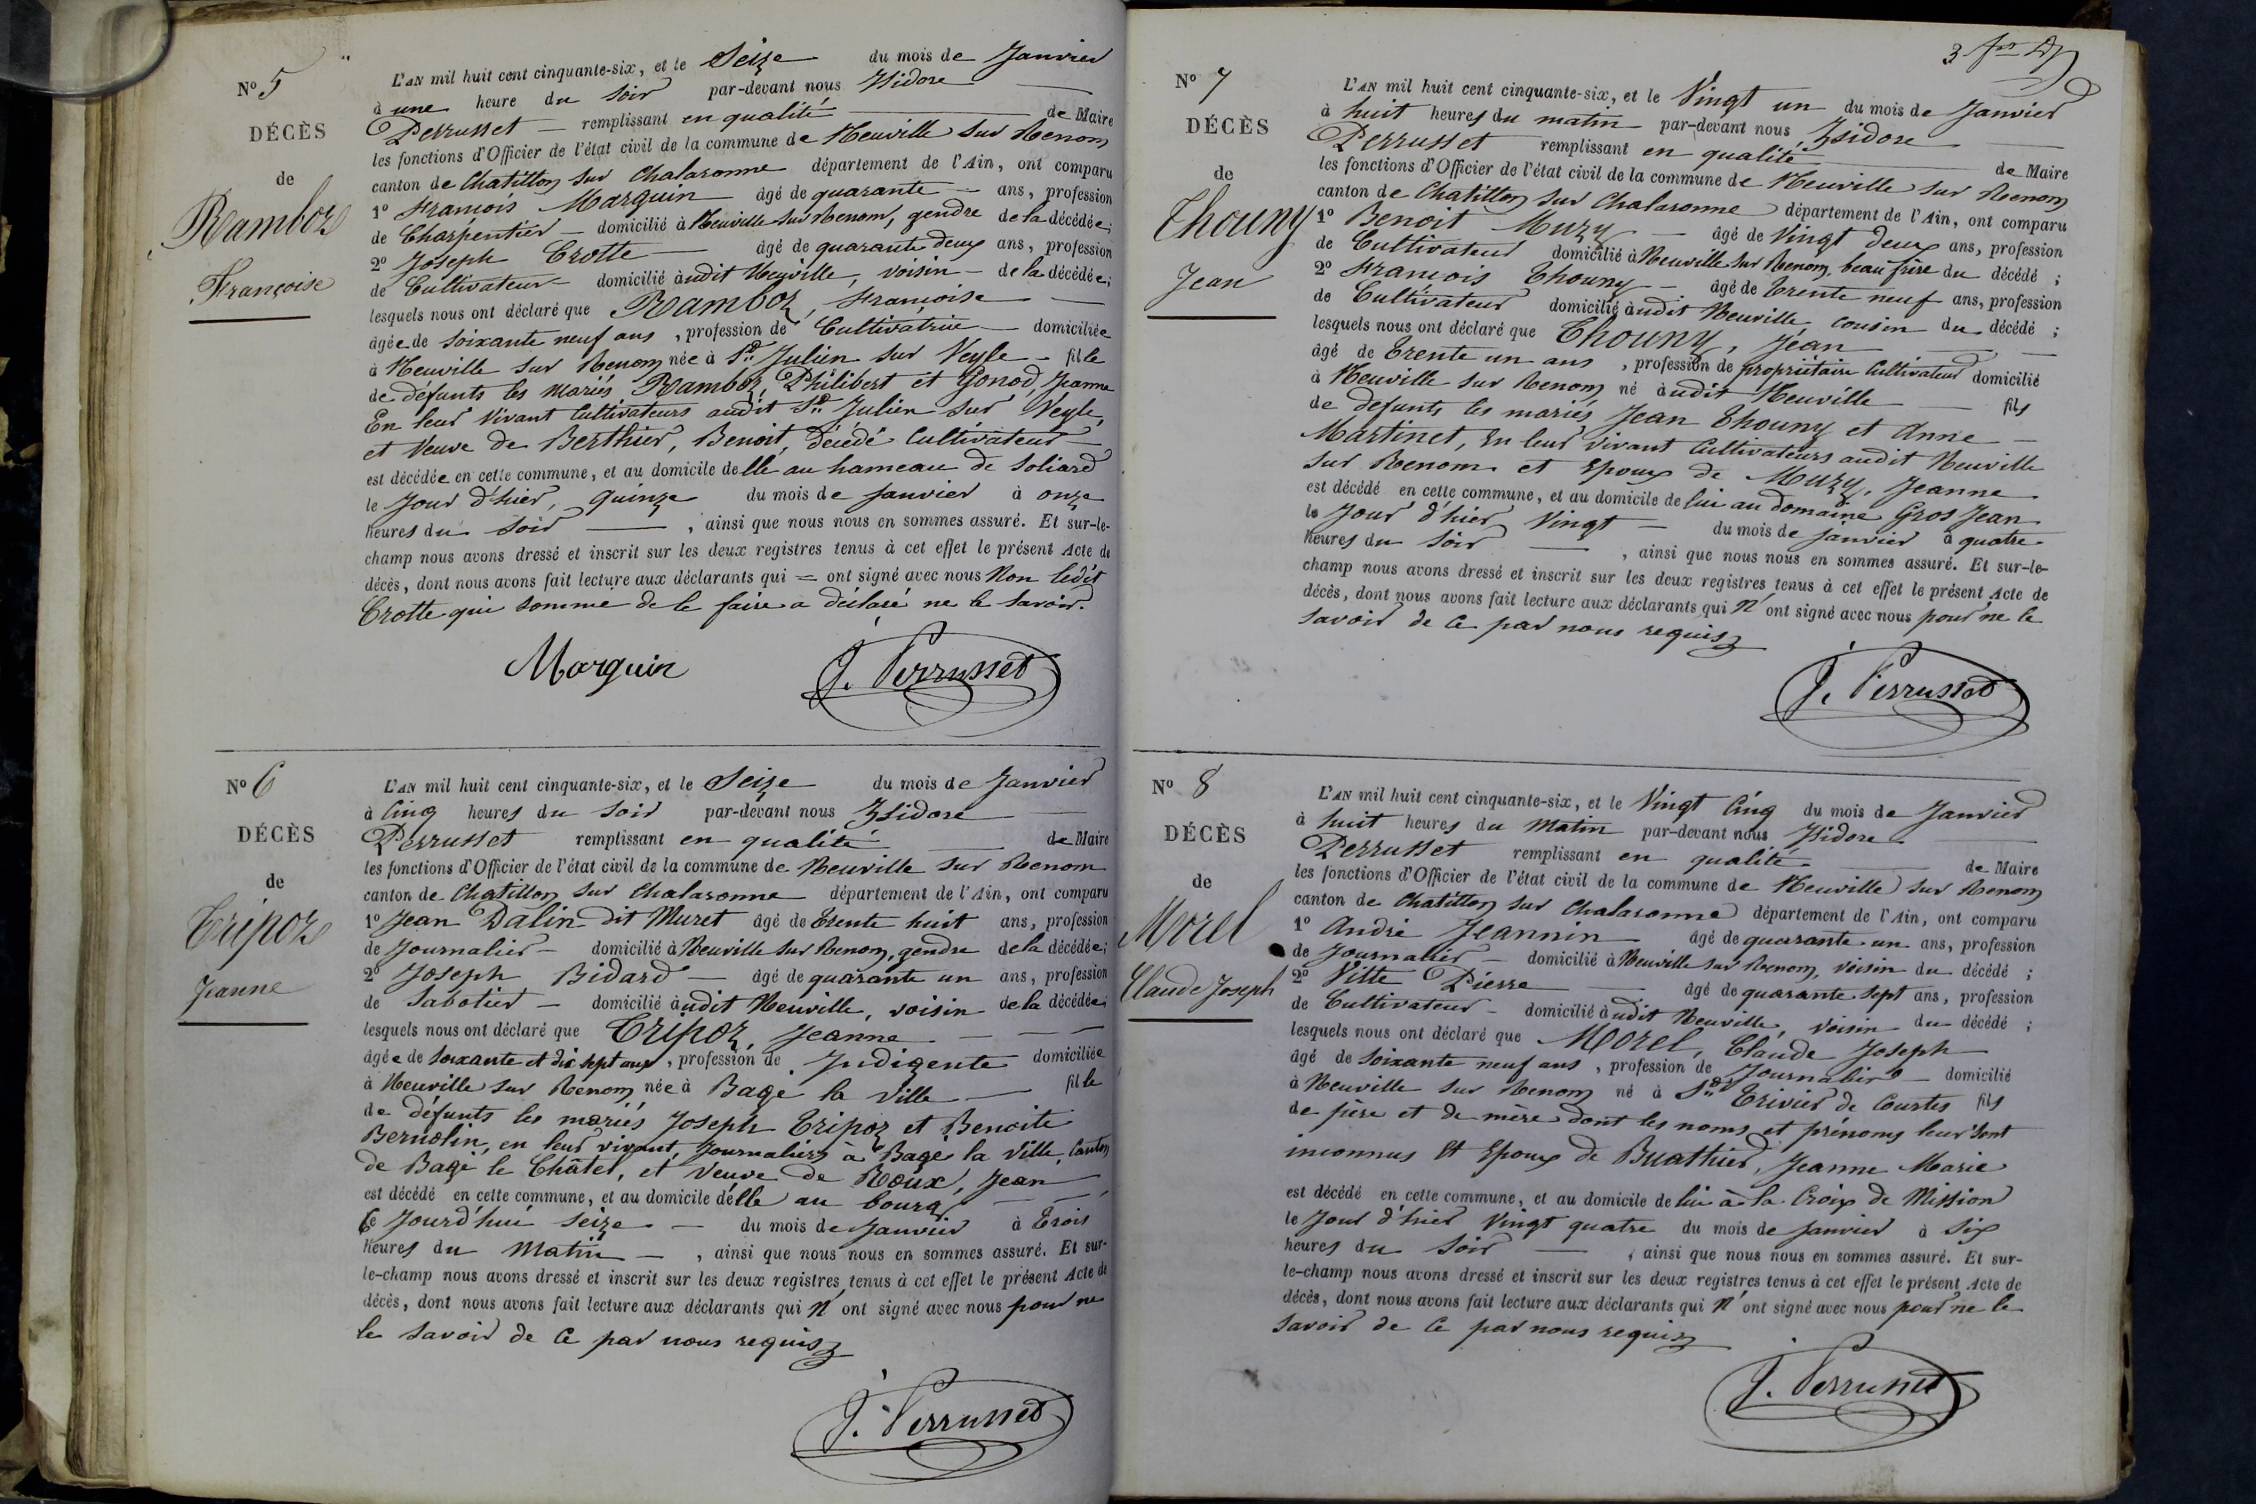 N° 5
DÉCÈS
de
Ramboz
Françoise
L'AN mil huit cent cinquante-six, et le Seize du mois de Janvier
à une heure du Soir par-devant nous Isidore
Perrusset remplissant en qualité de Maire
les fonctions d'Officier de l'état civil de la commune de Neuville sur Renom
canton de Chatillon sur Chalaronne département de l'Ain, ont comparu
1° François Marguin âgé de quarante ans, profession
de Charpentier domicilié à Neuville sur Renom, gendre de la décédée;
2° Joseph Crotte âgé de quarante deux ans, profession
de Cultivateur domicilié audit Neuville, voisin de la décédée;
lesquels nous ont déclaré que Ramboz, Françoise
âgée de soixante neuf ans, profession de Cultivatrice domiciliée
à Neuville sur Renom née à St Julien sur Veyle fille
de défunts les mariés Ramboz, Philibert et Gonod, Jeanne
En leur vivant Cultivateurs audit St Julien sur Veyle,
et Veuve de Berthier, Benoit, décédé Cultivateur
est décédée en cette commune, et au domicile delle au hameau de Soliard
le Jour d'hier, quinze du mois de Janvier à onze
heures du Soir, ainsi que nous nous en sommes assuré. Et sur-le-
champ nous avons dressé et inscrit sur les deux registres tenus à cet effet le présent Acte de
décès, dont nous avons fait lecture aux déclarants qui = ont signé avec nous Non ledit
Crotte qui sommé de le faire a déclaré ne le savoir.
Marguin J. Perrusset
N° 6
DÉCÈS
de
Tripoz
Jeanne
L'AN mil huit cent cinquante-six, et le Seize du mois de Janvier
à Cinq heures du Soir par-devant nous Isidore
Perrusset remplissant en qualité de Maire
les fonctions d'Officier de l'état civil de la commune de Neuville sur Renom
canton de Chatillon sur Chalaronne département de l'Ain, ont comparu
1° Jean Dalin dit Muret âgé de trente huit ans, profession
de Journalier domicilié à Neuville sur Renom, gendre de la décédée;
2° Joseph Bidard âgé de quarante un ans, profession
de Sabotier domicilié audit Neuville, voisin de la décédée;
lesquels nous ont déclaré que Tripoz, Jeanne
âgée de soixante et dix sept ans, profession de Indigente domiciliée
à Neuville sur Renom née à Bagé la Ville fille
de défunts les mariés Joseph Tripoz et Benoite
Bernolin, en leur vivant Journaliers à Bagé la Ville, Canton
de Bagé le Châtel, et Veuve de Roux, Jean
est décédé en cette commune, et au domicile delle au bourg
Ce Jourd'hui seize du mois de Janvier à trois
heures du Matin, ainsi que nous nous en sommes assuré. Et sur-
le-champ nous avons dressé et inscrit sur les deux registres tenus à cet effet le présent Acte de
décès, dont nous avons fait lecture aux déclarants qui n'ont signé avec nous pour ne
le savoir de ce par nous requis
J. Perrusset
3
N° 7
DÉCÈS
de
Thouny
Jean
L'AN mil huit cent cinquante-six, et le Vingt un du mois de Janvier
à huit heures du matin par-devant nous Isidore
Perrusset remplissant en qualité de Maire
les fonctions d'Officier de l'état civil de la commune de Neuville sur Renom
canton de Chatillon sur Chalaronne département de l'Ain, ont comparu
1° Benoit Muzy âgé de Vingt deux ans, profession
de Cultivateur domicilié à Neuville sur Renom, beau frère du décédé;
2° François Thouny âgé de trente neuf ans, profession
de Cultivateur domicilié audit Neuville, cousin du décédé;
lesquels nous ont déclaré que Thouny, Jean
âgé de trente un ans, profession de propriétaire Cultivateur domicilié
à Neuville sur Renom, né audit Neuville fils
de defunts les mariés Jean Thouny et Anne
Martinet, En leur vivant Cultivateurs audit Neuville
sur Renom et Epoux de Muzy, Jeanne
est décédé en cette commune, et au domicile de lui au domaine Gros Jean
le Jour d'hier Vingt du mois de Janvier à quatre
heures du Soir, ainsi que nous nous en sommes assuré. Et sur-le-
champ nous avons dressé et inscrit sur les deux registres tenus à cet effet le présent Acte de
décès, dont nous avons fait lecture aux déclarants qui n'ont signé avec nous pour ne le
savoir de ce par nous requis
J. Perrusset
N° 8
DÉCÈS
de
Morel
Claude Joseph
L'AN mil huit cent cinquante-six, et le Vingt Cinq du mois de Janvier
à huit heures du Matin par-devant nous Isidore
Perrusset remplissant en qualité de Maire
les fonctions d'Officier de l'état civil de la commune de Neuville sur Renom
canton de Chatillon sur Chalaronne département de l'Ain, ont comparu
1° André Jeannin âgé de quarante un ans, profession
de Journalier domicilié à Neuville sur Renom, voisin du décédé;
2° Vitte Pierre âgé de quarante sept ans, profession
de Cultivateur domicilié audit Neuville, voisin du décédé;
lesquels nous ont déclaré que Morel, Claude Joseph
âgé de soixante neuf ans, profession de Journalier domicilié
à Neuville sur Renom né à St Trivier de Courtes fils
de père et de mère dont les noms et prénoms leur sont
inconnus Et Epoux de Buathier, Jeanne Marie
est décédé en cette commune, et au domicile de lui à la Croix de Mission
le Jour d'hier Vingt quatre du mois de Janvier à six
heures du Soir, ainsi que nous nous en sommes assuré. Et sur-
le-champ nous avons dressé et inscrit sur les deux registres tenus à cet effet le présent Acte de
décès, dont nous avons fait lecture aux déclarants qui n'ont signé avec nous pour ne le
savoir de ce par nous requis
J. Perrusset